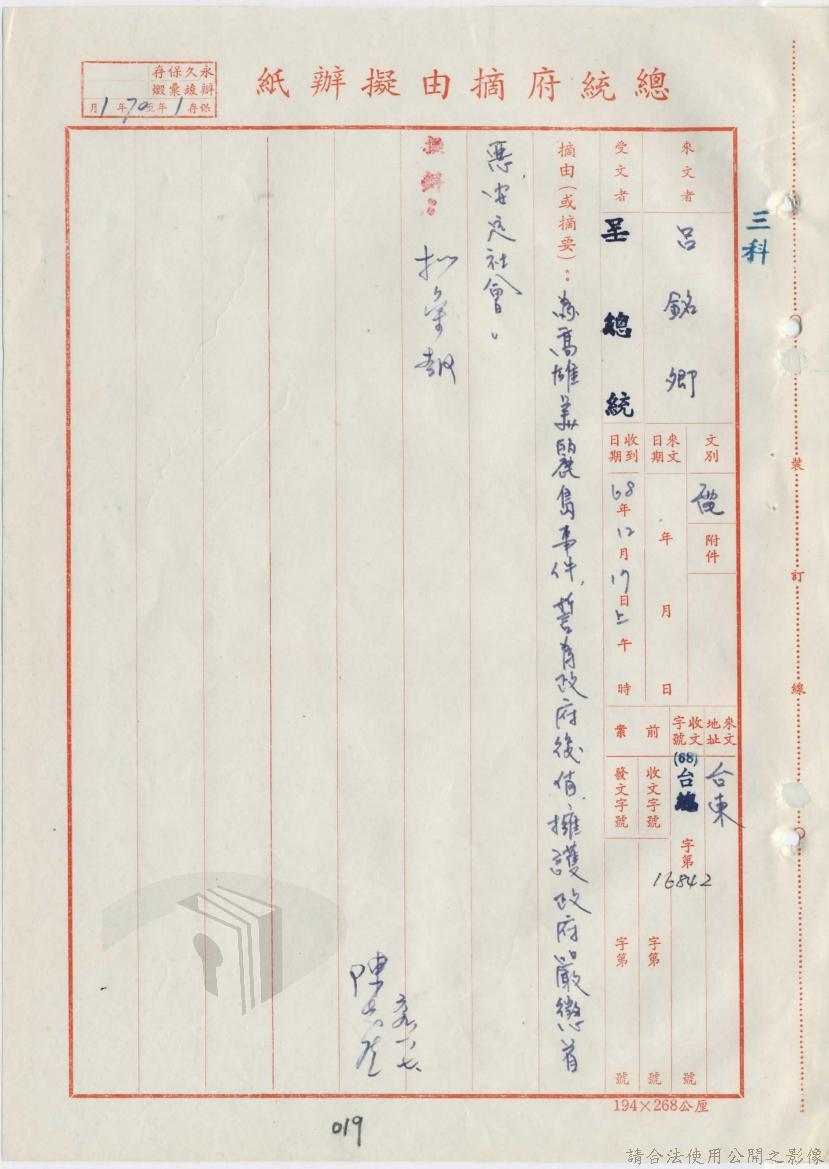 總統府摘由擬辦紙
永久保存
辦竣彙燬
保存1年至70年1月
三科
來文者 呂銘卿
受文者 呈總統
文別 電
附件
來文日期 年 月 日
收到日期 68年12月17日上午 時
來文地址 台東
收文字號 (68)台總 字第 16842 號
前案
收文字號 字第 號
發文字號 字第 號
摘由(或摘要): 為高雄美麗島事件,誓為政府後盾,擁護政府嚴懲首
惡,安定社會。
擬辦:
擬彙報
陳
裝訂線
194×268公厘
019
請合法使用公開之影像